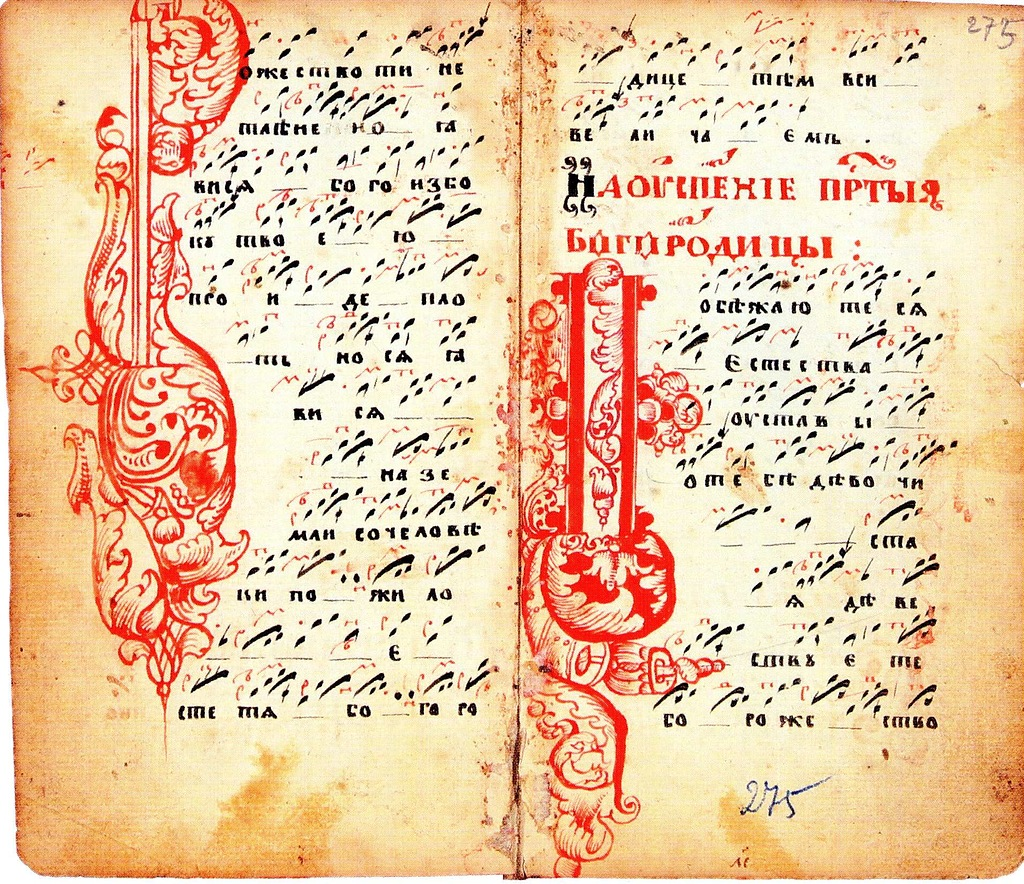 275
ожество ти не
тлѣне но ꙗ
вися бого избо
кꙋ тво е ю
про и де пло
ть но ся ꙗ
ви ся
на зе
мли со человѣ
ки по жи ло
е
сте тя бо го ро
дице тѣм вси
ве ли ча емъ .
На оуспение пртыя
Богородицы :
обѣжаю те ся
естества
оустав ы
оте бѣ дѣво чи
ста
я дѣ ве
ствꙋ е те
бо роже ство
275